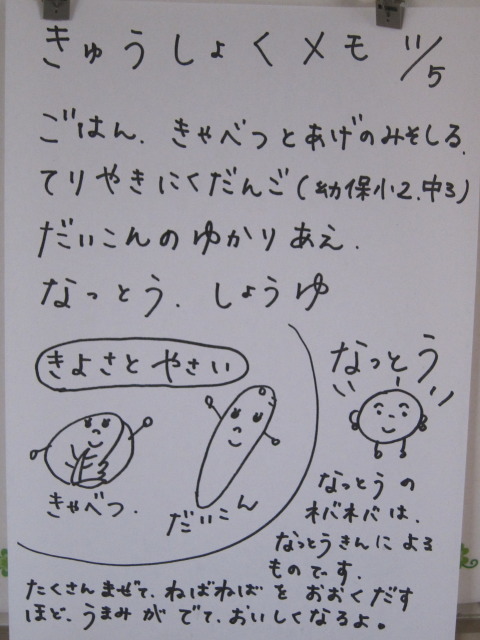 きゅうしょくメモ 11/5
ごはん、きゃべつとあげのみそしる、
てりやきにくだんご(幼保小2、中3)
だいこんのゆかりあえ、
なっとう、しょうゆ
きよさとやさい
きゃべつ、
だいこん
なっとう
なっとうの
ネバネバは、
なっとうきんによる
ものです。
たくさんまぜて、ねばねばをおおくだす
ほど、うまみがでて、おいしくなるよ。